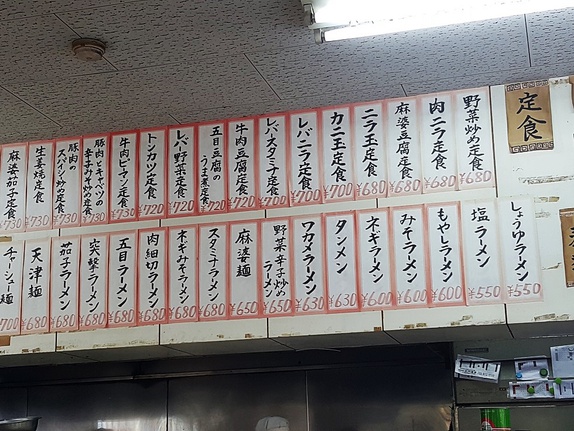 定食
野菜炒め定食 ¥680
肉ニラ定食 ¥680
麻婆豆腐定食 ¥680
ニラ玉定食 ¥680
カニ玉定食 ¥700
レバニラ定食 ¥700
レバスタミナ定食 ¥700
牛肉豆腐定食 ¥720
五目豆腐の
うま煮定食 ¥720
レバ野菜定食 ¥720
トンカツ定食 ¥720
牛肉ピーマン定食 ¥730
豚肉とキャベツの
辛子みそ炒め定食 ¥730
豚肉の
スパイシー炒め定食 ¥730
生姜焼定食 ¥730
麻婆茄子定食 ¥730
しょうゆラーメン ¥550
塩ラーメン ¥550
もやしラーメン ¥600
みそラーメン ¥600
ネギラーメン ¥600
タンメン ¥630
ワカメラーメン ¥630
野菜辛子炒め
ラーメン ¥650
麻婆麺 ¥650
スタミナラーメン ¥680
ネギみそラーメン ¥680
肉細切ラーメン ¥680
五目ラーメン ¥680
突撃ラーメン ¥680
茄子ラーメン ¥680
天津麺 ¥680
チャーシュー麺 700